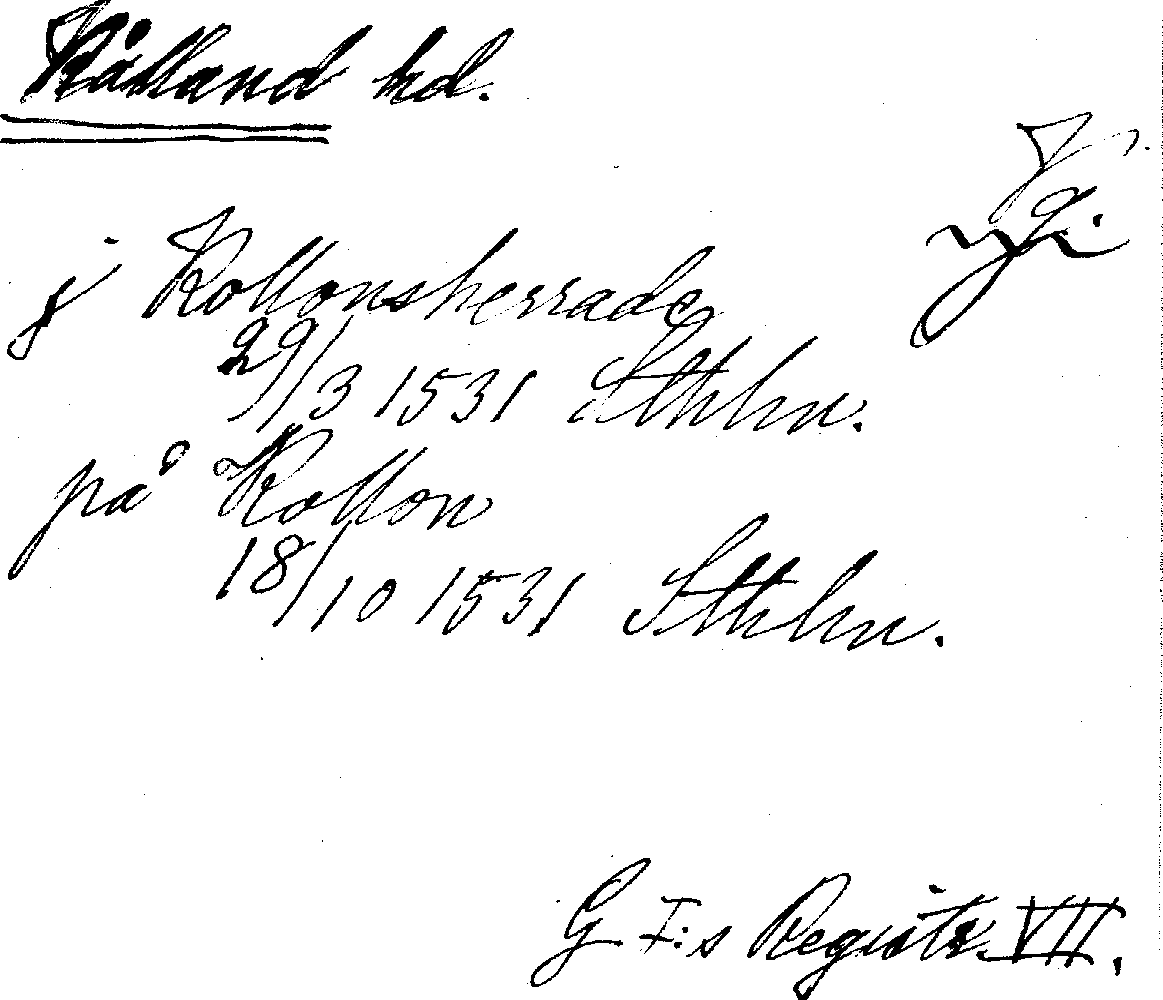 Kålland hd.
Vg.
j Kollonsherrade
29/3 1531 Sthlm.
på Kollon
18/10 1531 Sthlm.
G I:s Registr. VII.